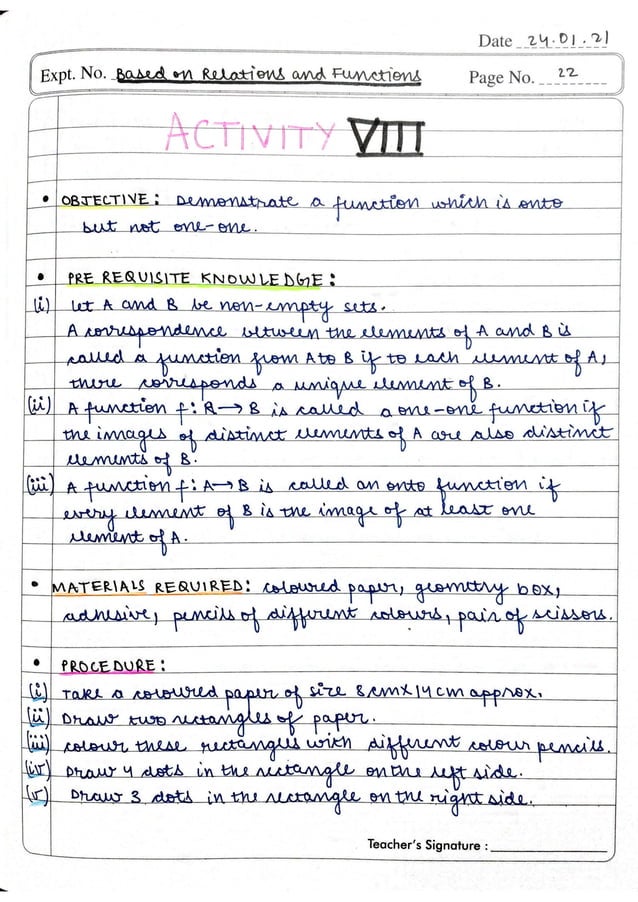 Date 24.01.21
Expt. No. Based on Relations and Functions Page No. 22
ACTIVITY VIII
• OBJECTIVE: Demonstrate a function which is onto
but not one-one.
• PRE REQUISITE KNOWLEDGE:
(i) Let A and B be non-empty sets.
A correspondence between the elements of A and B is
called a function from A to B if to each element of A,
there corresponds a unique element of B.
(ii) A function f: R→B is called a one-one function if
the images of distinct elements of A are also distinct
elements of B.
(iii) A function f: A→B is called an onto function if
every element of B is the image of at least one
element of A.
• MATERIALS REQUIRED: coloured paper, geometry box,
adhesive, pencils of different colours, pair of scissors.
• PROCEDURE:
(i) Take a coloured paper of size 8cmx14cm approx.
(ii) Draw two rectangles of paper.
(iii) colour these rectangles with different colour pencils.
(iv) Draw 4 dots in the rectangle on the left side.
(v) Draw 3 dots in the rectangle on the right side.
Teacher's Signature :